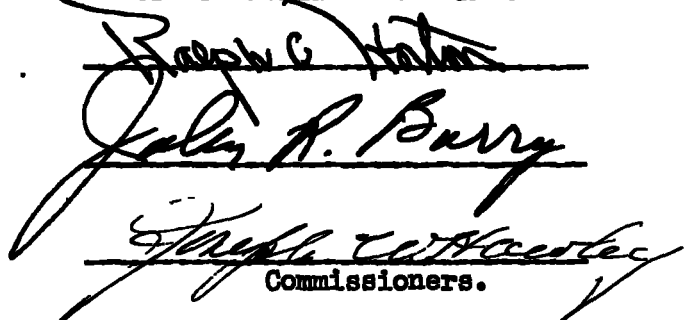 Ralph C Horton
John R. Barry
Joseph W
Commissioners.